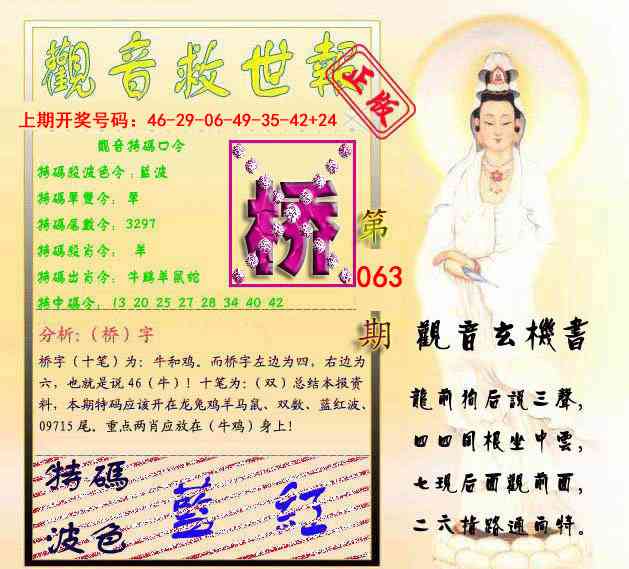 觀音救世報
正版
上期开奖号码：46-29-06-49-35-42+24
觀音特碼口令
特碼段波色令：藍波
特碼單雙令： 單
特碼尾數令：3297
特碼段肖令： 羊
特碼出肖令：牛鷄羊鼠蛇
特中碼令：13 20 25 27 28 34 40 42
桥
第
063
期
分析:（桥）字
桥字（十笔）为：牛和鸡。而桥字左边为四，右边为
六，也就是说46（牛）！十笔为：（双）总结本报资
料，本期特码应该开在龙兔鸡羊马鼠、双数、蓝红波、
09715尾。重点两肖应放在（牛鸡）身上！
特碼
波色
藍 紅
觀音玄機書
龍前狗后説三聲，
四四同根坐中雲，
七现后面觀前面，
二六指路通而特。